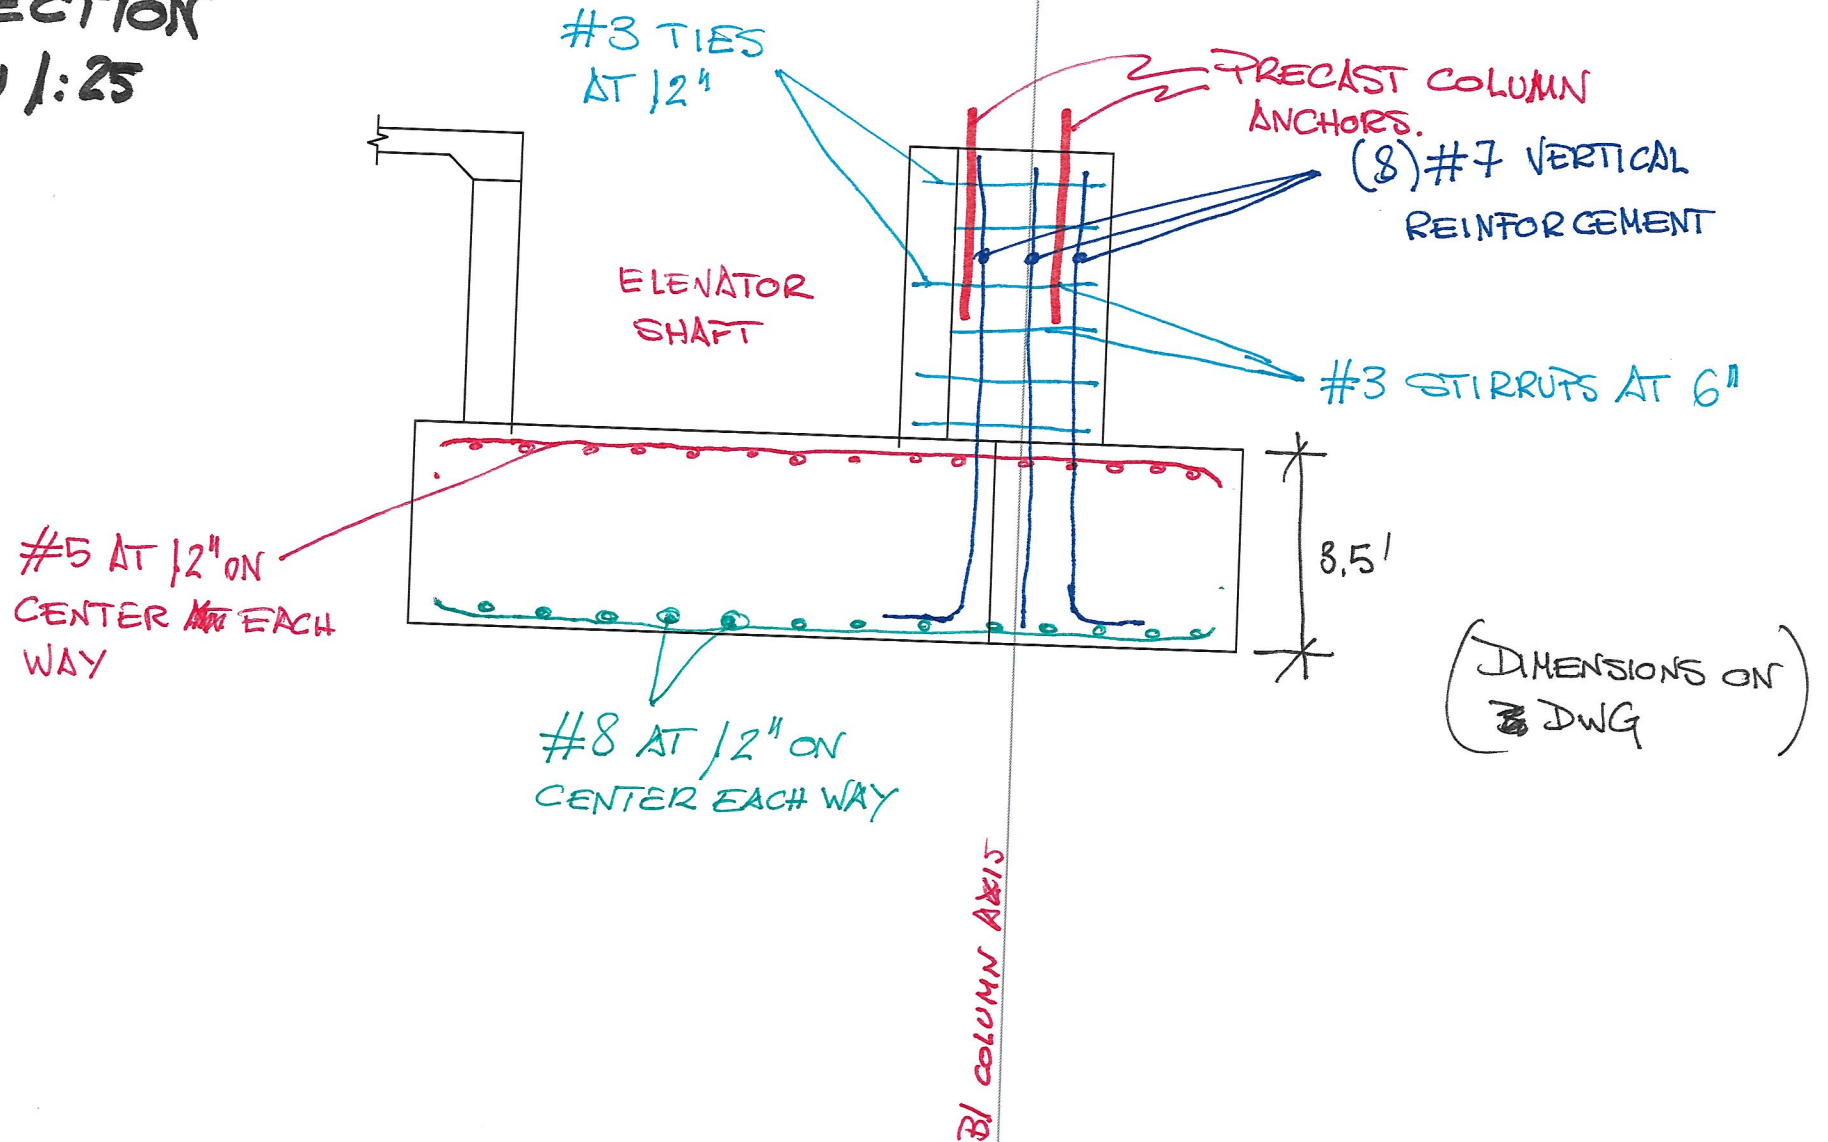 ECTION
1:25
#3 TIES
AT 12"
PRECAST COLUMN
ANCHORS.
(8)#7 VERTICAL
REINFORCEMENT
ELENATOR
SHAFT
#3 STIRRUPS AT 6"
#5 AT 12" ON
CENTER EACH
WAY
3,5'
(DIMENSIONS ON
DWG)
#8 AT 12" ON
CENTER EACH WAY
B1 COLUMN AXIS